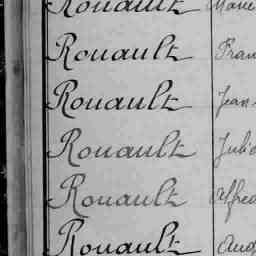 Rouault Marie
Rouault Fran
Rouault Jean-
Rouault Julie
Rouault Alfred
Rouault Aug